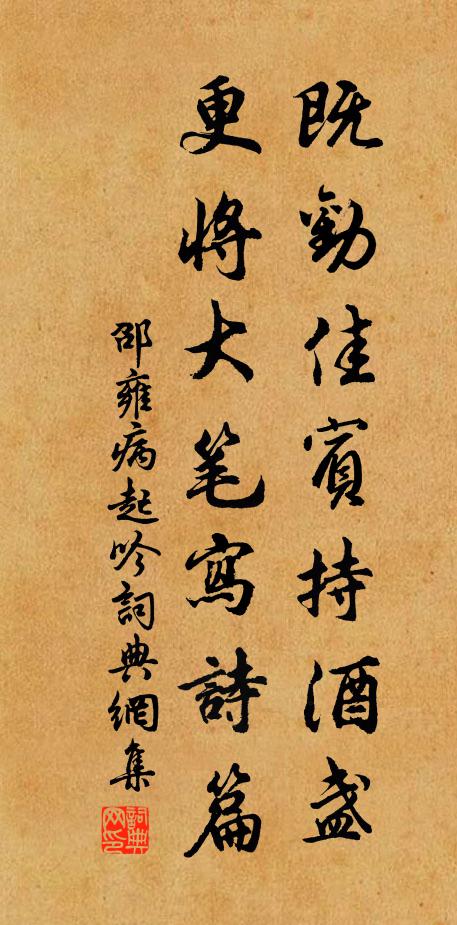 既勸佳賓持酒盞
更將大笔寫詩篇
邵雍病起吟詞典網集
詞典网印